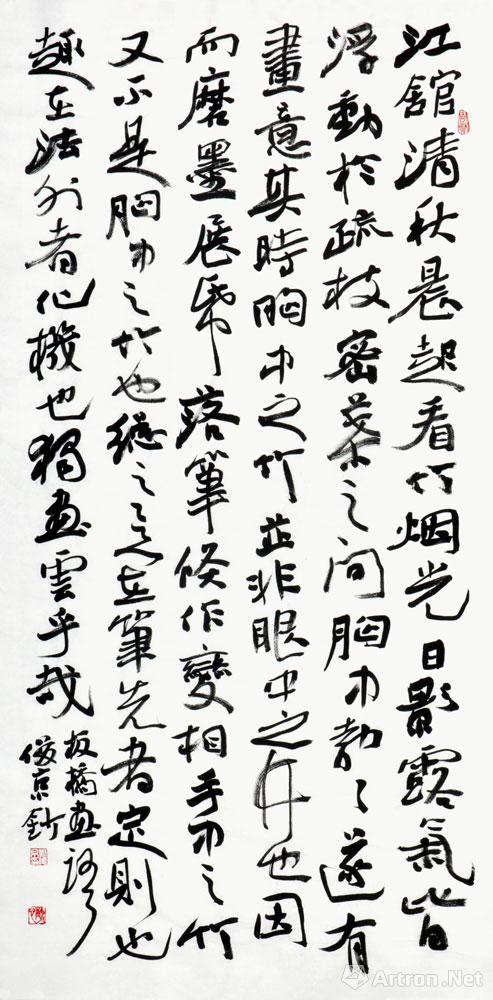 江舘清秋晨起看竹烟光日影露氣皆
浮動於疏枝密葉之間胸中勃々遂有
畫意其時胸中之竹並非眼中之竹也因
而磨墨展帋落筆倏作變相手中之竹
又不是胸中之竹也總之意在筆先者定則也
趣在法外者化機也獨画雲乎哉
板橋画
俊京鈔
Artron.Net